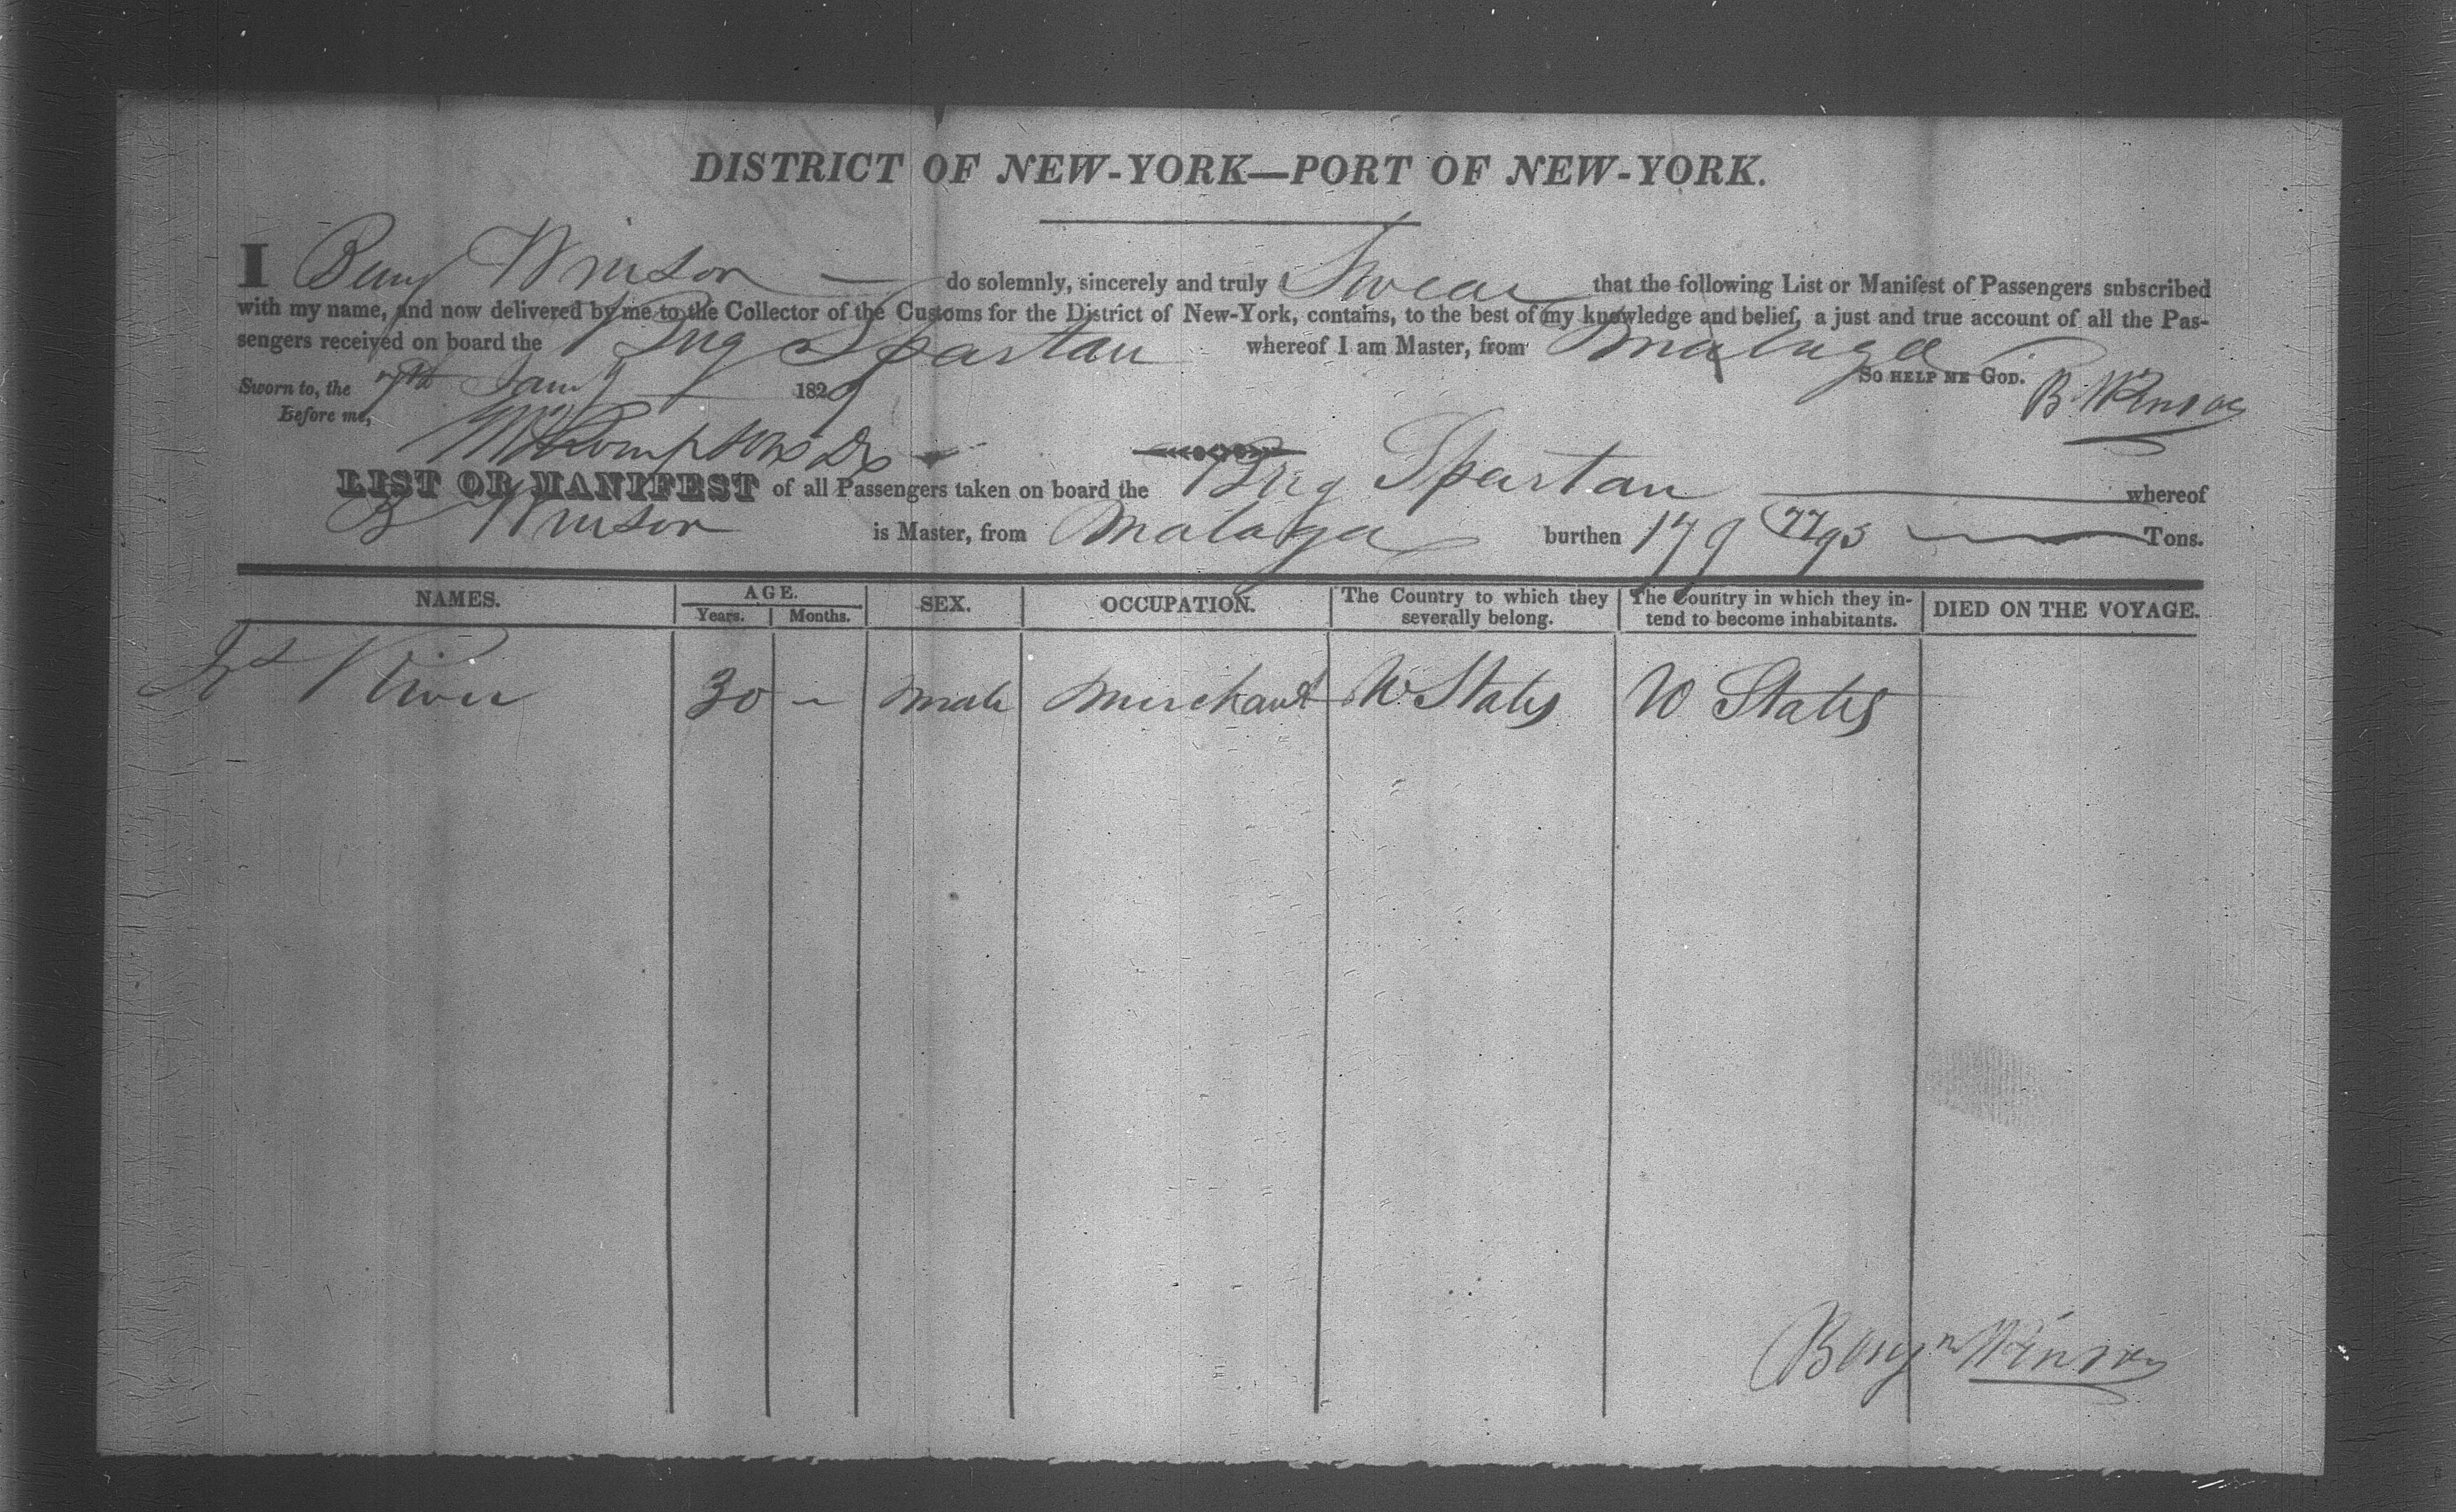 DISTRICT OF NEW-YORK—PORT OF NEW-YORK.
I Benj Winsor — do solemnly, sincerely and truly Swear that the following List or Manifest of Passengers subscribed
with my name, and now delivered by me to the Collector of the Customs for the District of New-York, contains, to the best of my knowledge and belief, a just and true account of all the Pas-
sengers received on board the Brig Spartan whereof I am Master, from Malaga
So HELP ME GOD.
Sworn to, the 7th Jany 1829
B. Winsor
Before me,
Thompson
LIST OR MANIFEST of all Passengers taken on board the Brig Spartan — whereof
B Winsor is Master, from Malaga burthen 179 77/95 Tons.
NAMES. AGE. Years. Months. SEX. OCCUPATION. The Country to which they severally belong. The Country in which they in-tend to become inhabitants. DIED ON THE VOYAGE.
30 – male merchant U States U States
Benjn Winsor